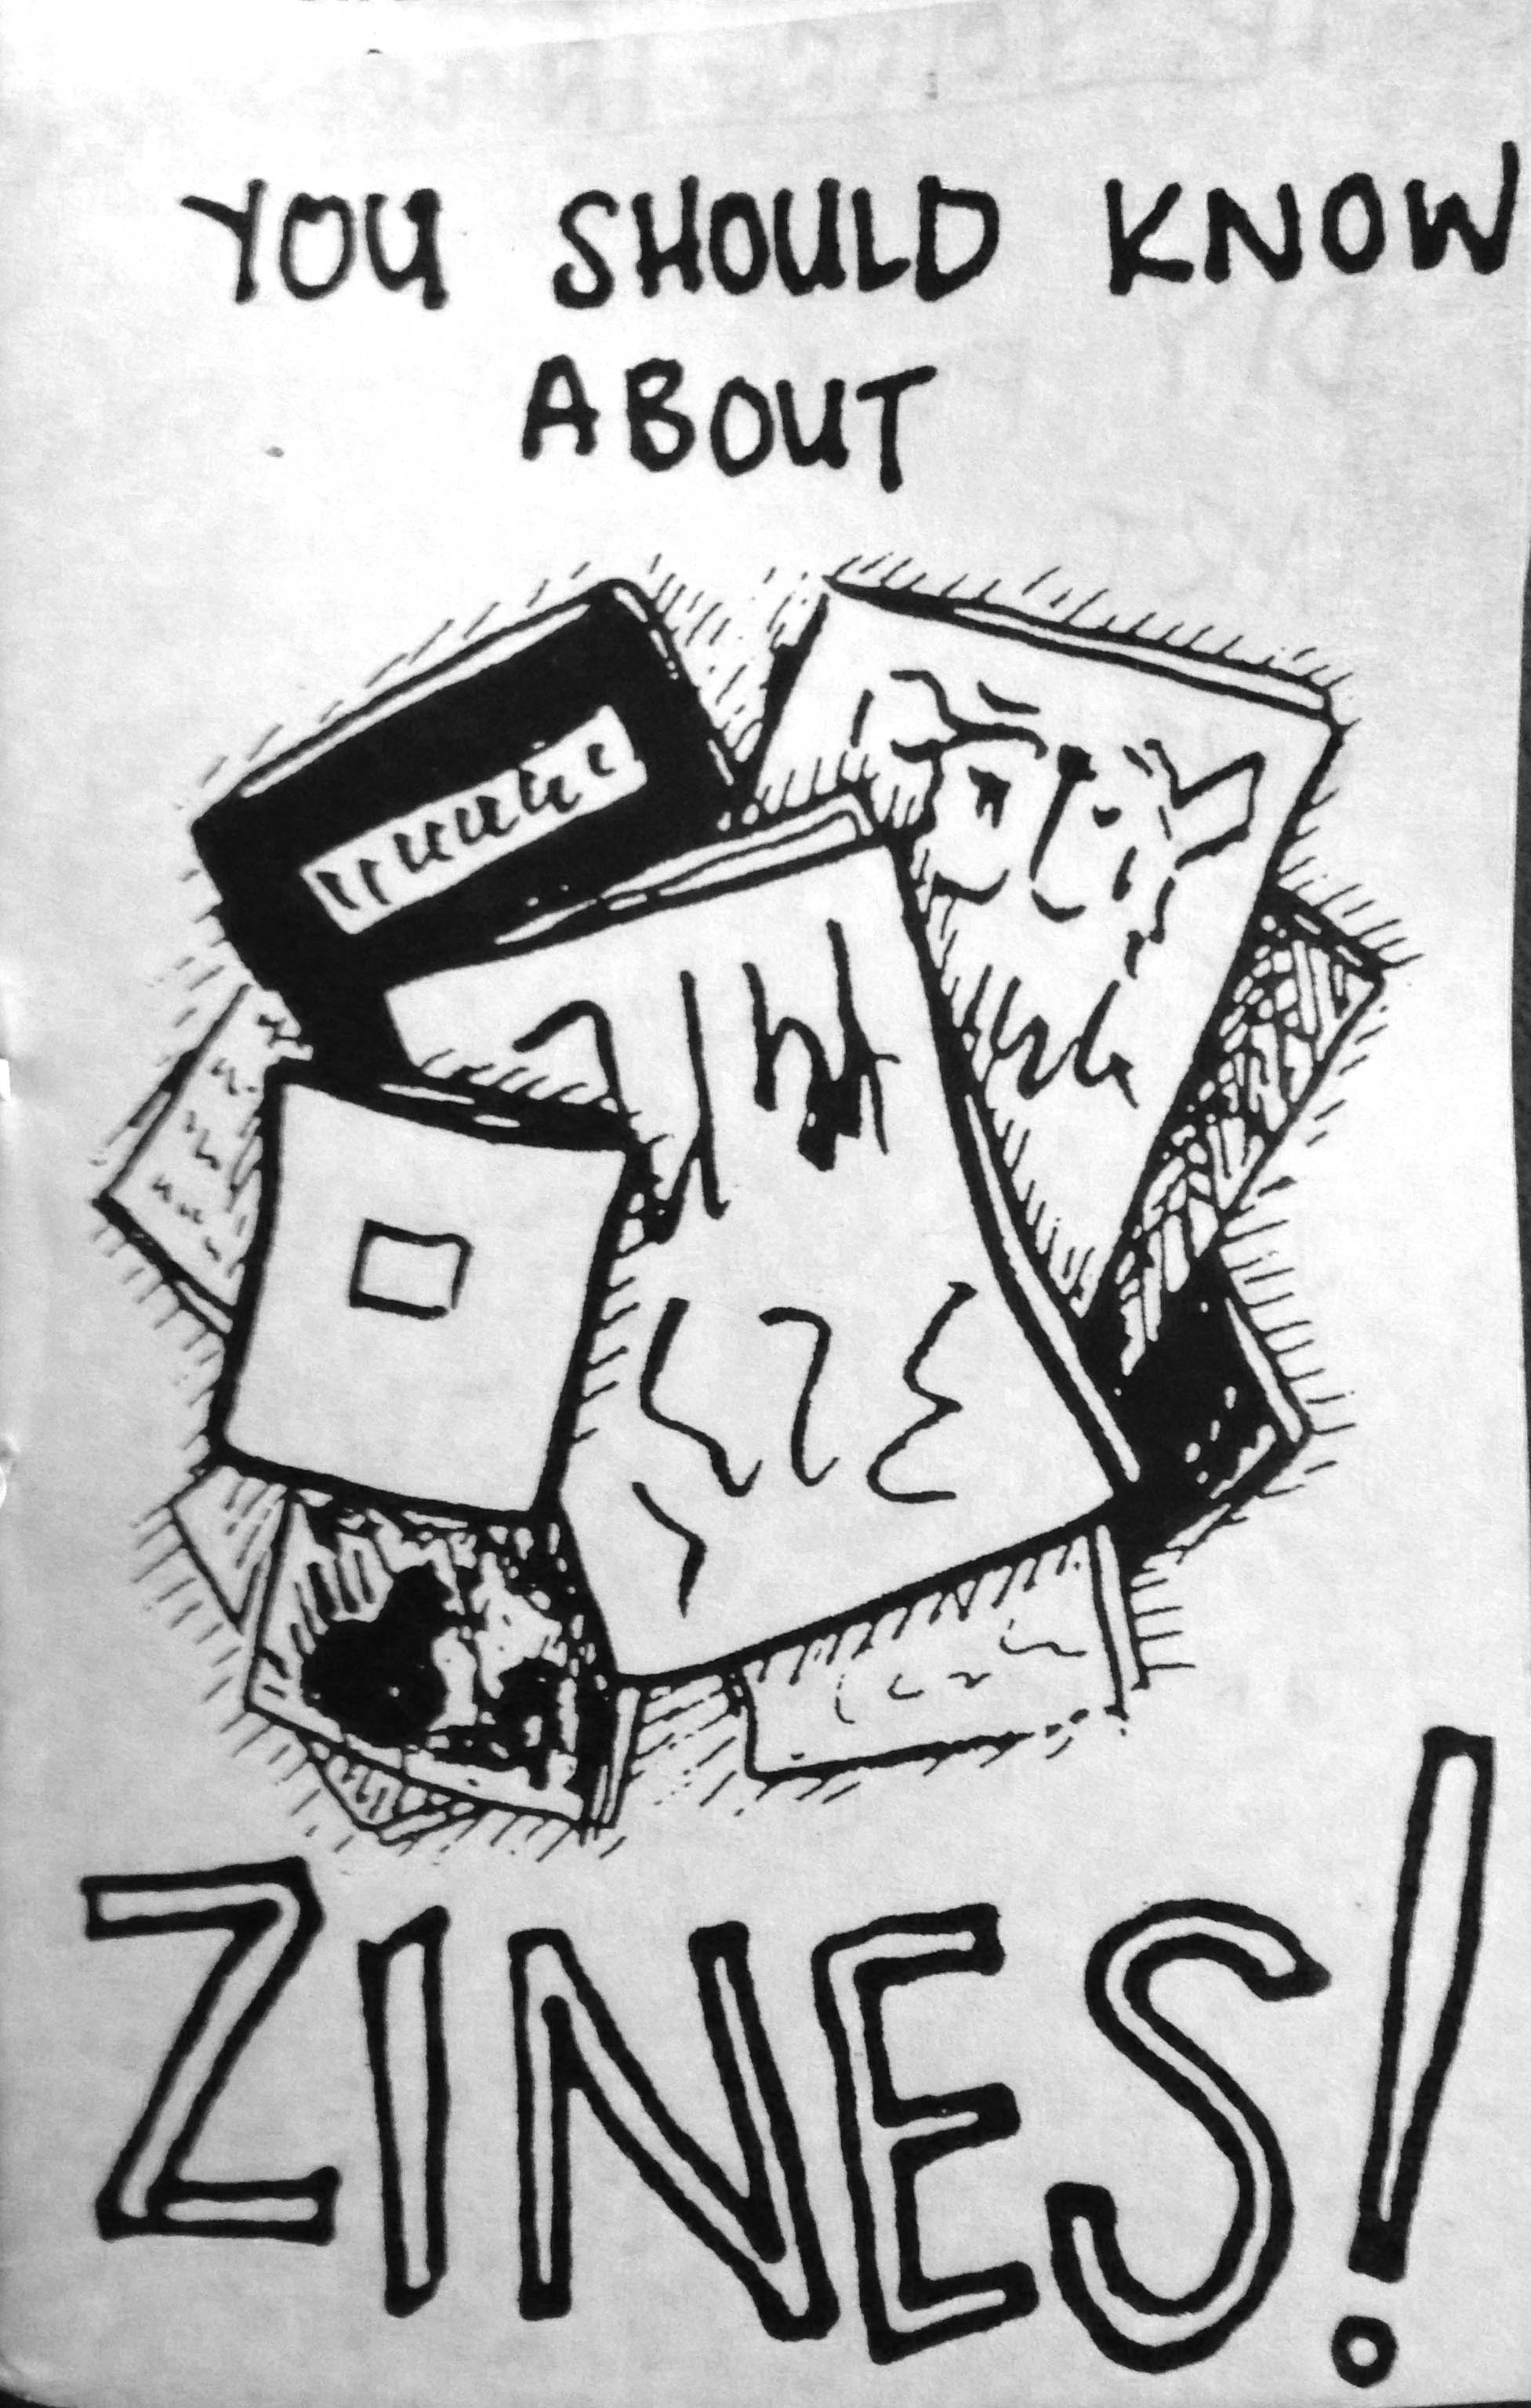 YOU SHOULD KNOW
ABOUT
ZINES!